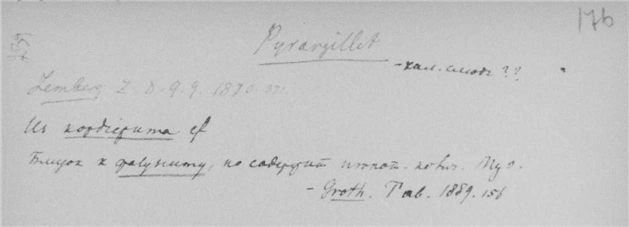 176
Pyrargillit
- кал. слюда ??
Lemberg Z. D. g. G. 1870.
Из кордиерита cf
Близок к фалуниту, но содержит кол. MgO.
- Groth. Tab. 1889. 156